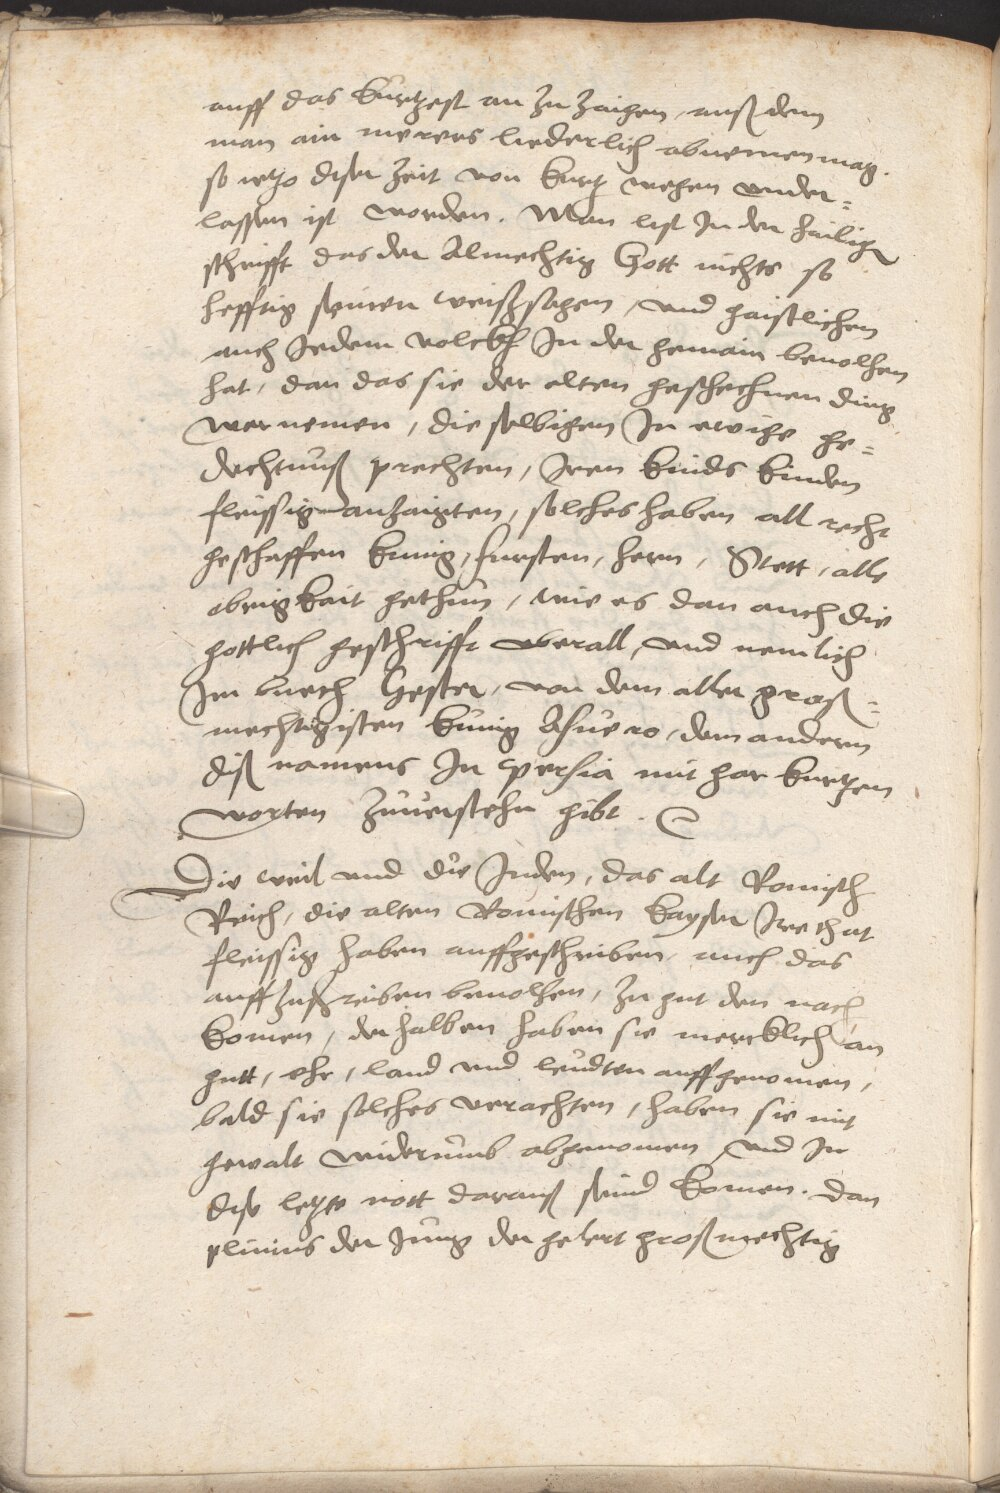 auff das kurtzest an zu zaigen, auß dem
man ain merers liederlich abnemen mag.
so ietzo diser zeit von kurtz wegen vnder=
lassen ist worden. Man list In der hailigen
schrifft das der Almechtig Gott nichts so
hefftig seinen weißsagen, vnd gaistlichen
auch Jedem volckh In der gemain beuolhen
hat, dan das sie der alten geschechnen ding
war nemen, die selbigen In ewige ge=
dechtnuß prechten, Iren kinds kinden
fleissig anzaigten, solches haben all recht
geschaffen kunig, fursten, hern, Stett, alle
obrigkait gethun, wie es dan auch die
gottlich geschrifft vberall, vnd nemlich
Im buech Hester, von dem aller groß=
mechtigisten kunig Asuero, dem andern
diß namens In Persia mit gar kurtzen
worten zuuerstehn gibt.
Die weil vnd die Juden, das alt Romisch
Reich, die alten Romischen kayser Ire that
fleissig haben auffgeschriben, auch das
auff zuschreiben beuolhen, zu gut den nach
komen, der halben haben sie mercklich an
gutt, ehr, land vnd leudten auffgenomen,
bald sie solches verachten, haben sie mit
gewalt widerumb abgenomen vnd In
dise letzte nott darauß seind komen. Dan
plinius der Jung der gelert großmechtig